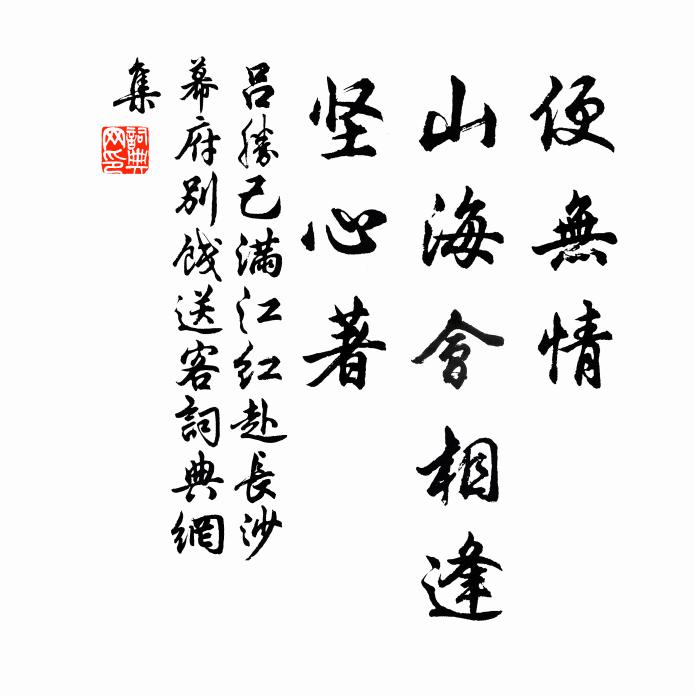 便無情
山海會相逢
坚心著
吕勝己满江红赴長沙
幕府别餞送客詞典網
集
詞典網印